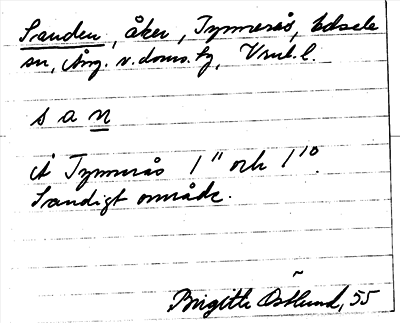 Sanden, åker, Tymmerås, Edsele
sn, Ång. v. doms. fg, Vsml. l.
s a n
Å Tymmerås 1" och 1¹⁰.
Sandigt område.
Birgitte Östlund, 55